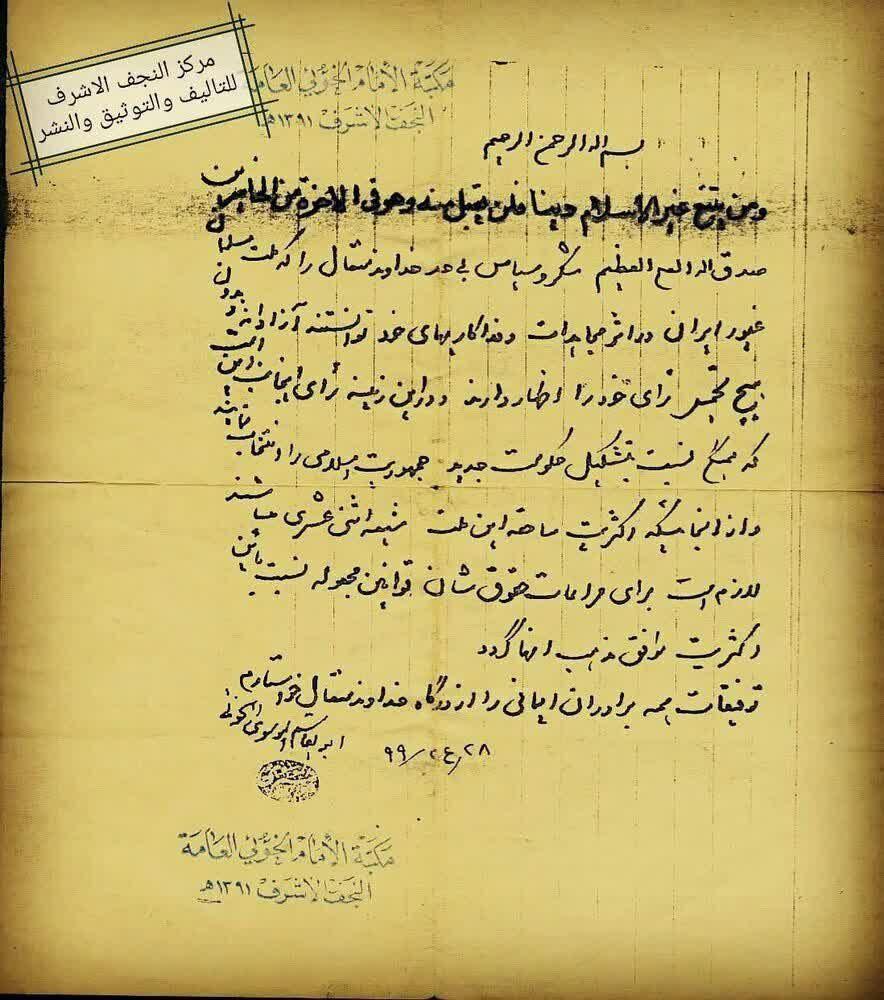 مركز النجف الاشرف
للتاليف والتوثيق والنشر
مكتبة الإمام الخوئي العامة
النجف الاشرف ١٣٩١هـ
بسم الله الرحمن الرحيم
ومن يبتغ غير الاسلام دينا فلن يقبل منه وهو في الاخرة من الخاسرين
صدق الله العلي العظيم شکر و سپاس بی حد خداوند متعال را که ملت مسلمان
غیور ایران در اثر مجاهدات و فداکاریهای خود توانستند آزادانه و بدون
هیچ رأی خود را اظهار دارند و در این زمینه رأی اینجانب این است
که همگی نسبت بتشکیل حکومت جدید جمهوریت اسلامی را انتخاب نمایند
و از آنجائیکه اکثریت ساحقه این ملت شیعه اثنی عشری میباشند
لازم است برای مراعات حقوق شان قوانین مجعوله نسبت باین
اکثریت موافق مذهب آنها گردد
توفیقات همه برادران ایمانی را از درگاه خداوند متعال خواستارم
ابوالقاسم الموسوی الخوئی
٢٨/ع٢/٩٩
مكتبة الإمام الخوئي العامة
النجف الاشرف ١٣٩١هـ